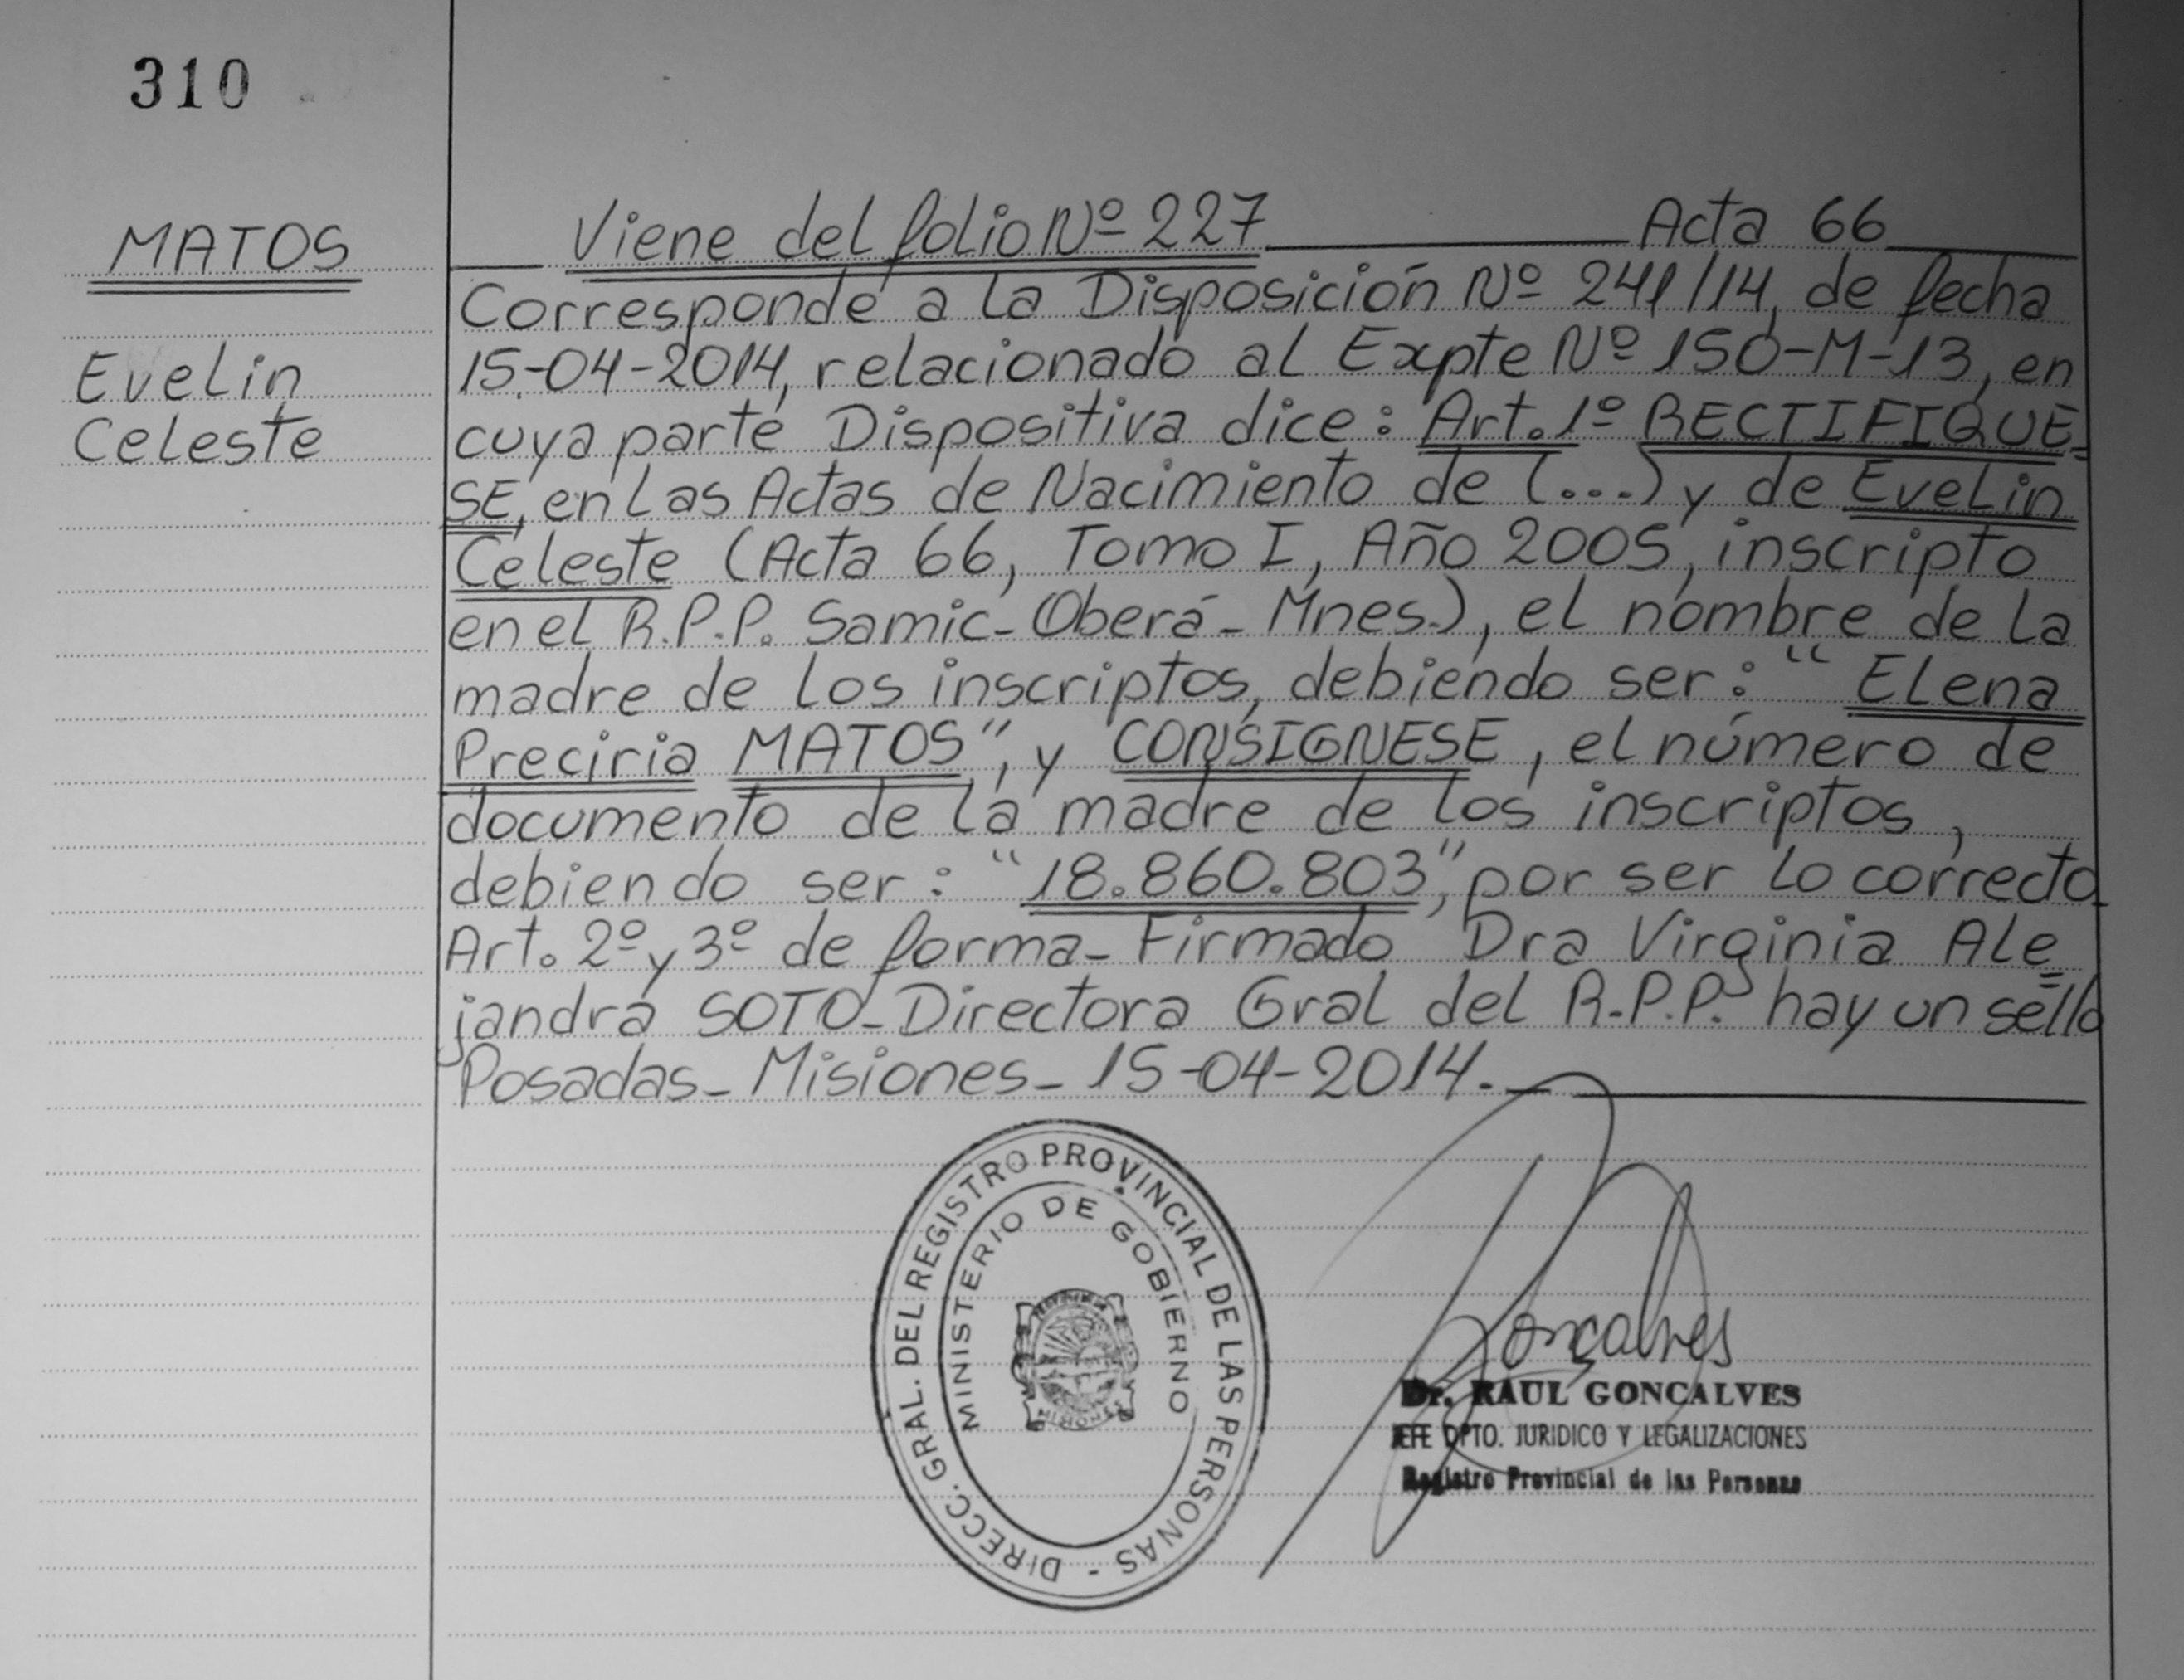 310
MATOS
Evelin
Celeste
Viene del folio Nº 227 Acta 66
Corresponde a la Disposición Nº 241/14, de fecha
15-04-2014, relacionado al Expte Nº 150-M-13, en
cuya parte Dispositiva dice: Art. 1º RECTIFIQUE=
SE, en las Actas de Nacimiento de (...) y de Evelin
Celeste (Acta 66, Tomo I, Año 2005, inscripto
en el R.P.P. Samic-Oberá-Mnes.), el nombre de la
madre de los inscriptos, debiendo ser: "Elena
Preciria MATOS", y CONSIGNESE, el número de
documento de la madre de los inscriptos,
debiendo ser: "18.860.803", por ser lo correcto-
Art. 2º y 3º de forma- Firmado Dra Virginia Ale=
jandra SOTO-Directora Gral del R.P.P. hay un sello
Posadas-Misiones-15-04-2014.-
DIRECC. GRAL. DEL REGISTRO PROVINCIAL DE LAS PERSONAS -
MINISTERIO DE GOBIERNO
MISIONES
Gonçalves
Dr. RAUL GONCALVES
JEFE DPTO. JURIDICO Y LEGALIZACIONES
Registro Provincial de las Personas